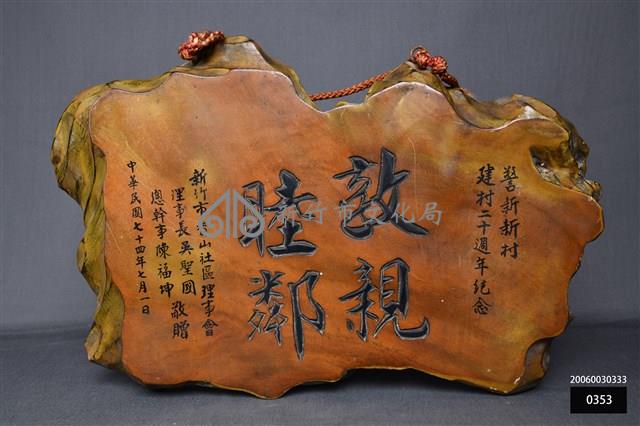 警新新村
建村二十週年紀念
敦親
睦鄰
新竹市 山社區理事會
理事長吳聖國
總幹事陳福坤 敬贈
中華民國七十四年七月一日
新竹市文化局
20060030333
0353